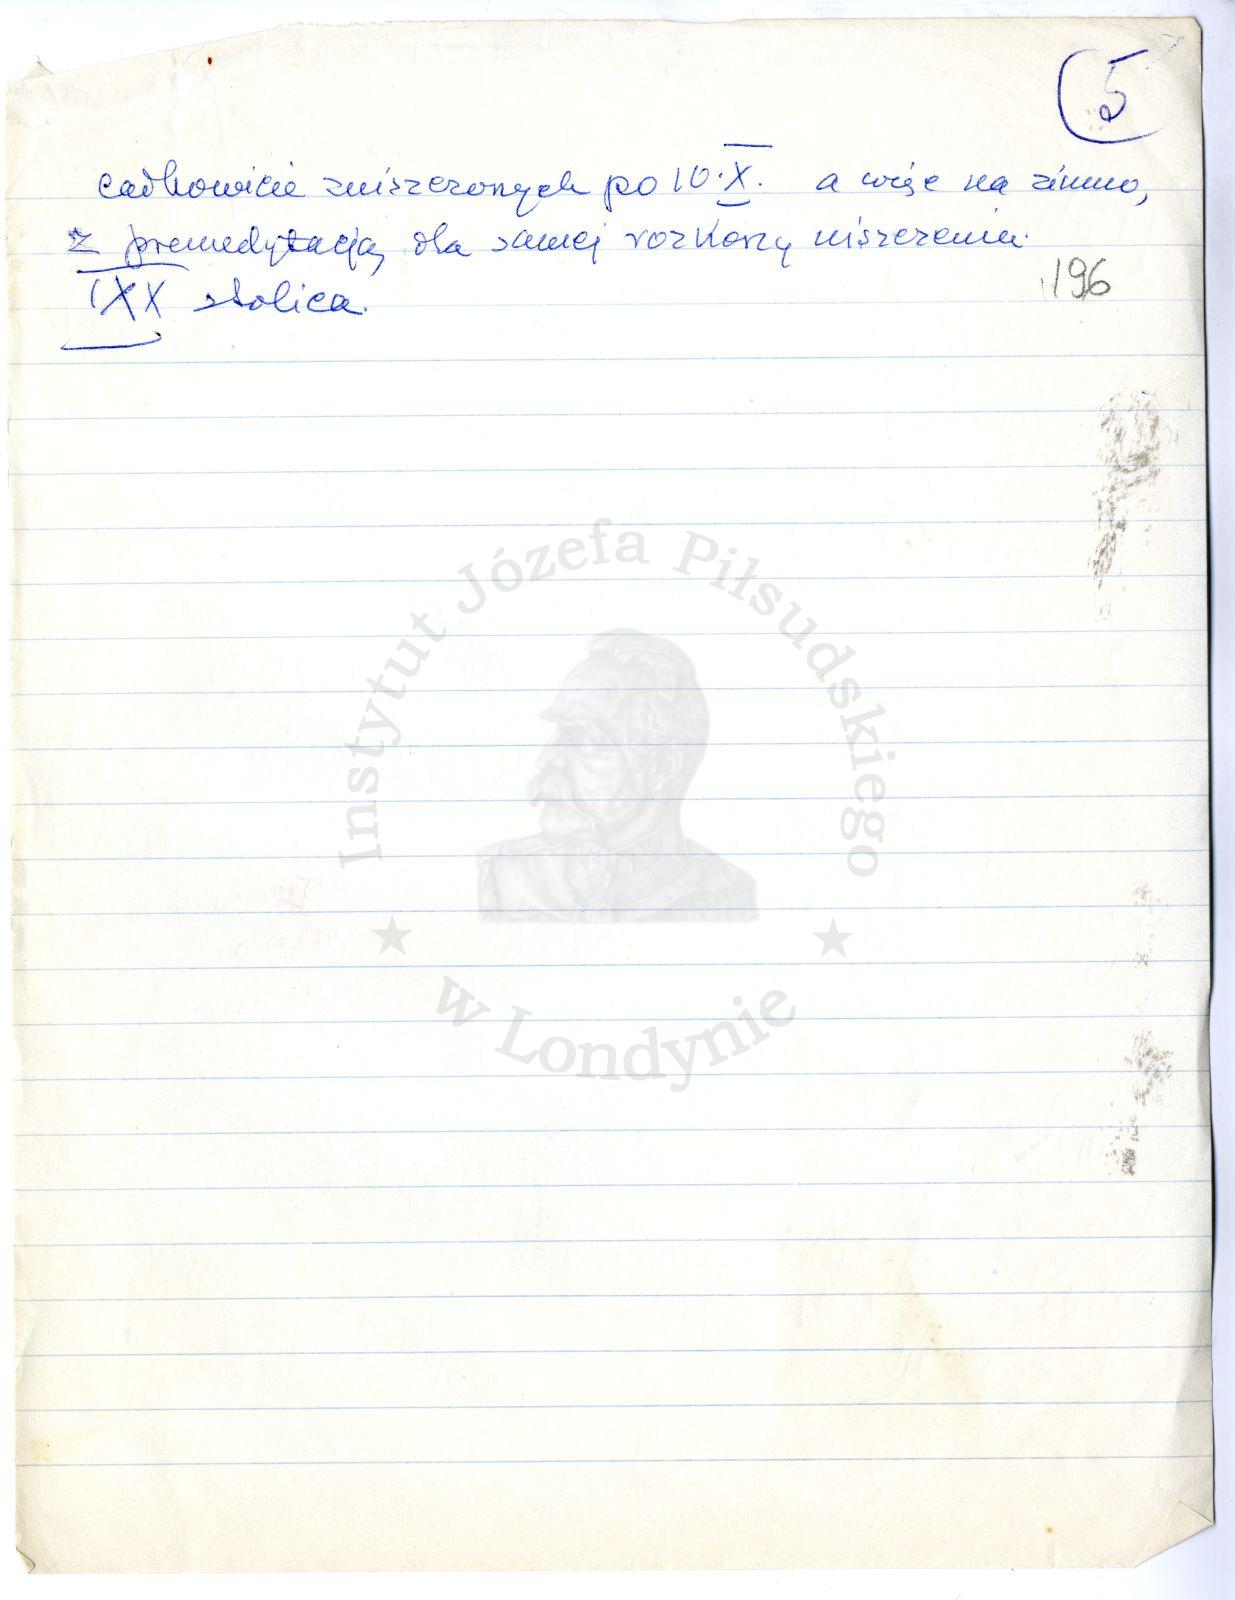 5
całkowicie zniszczonych po 10.X. a więc na zimno,
z premedytacją, dla samej rozkoszy niszczenia.
196
IXX stolica.
Instytut Józefa Piłsudskiego
w Londynie